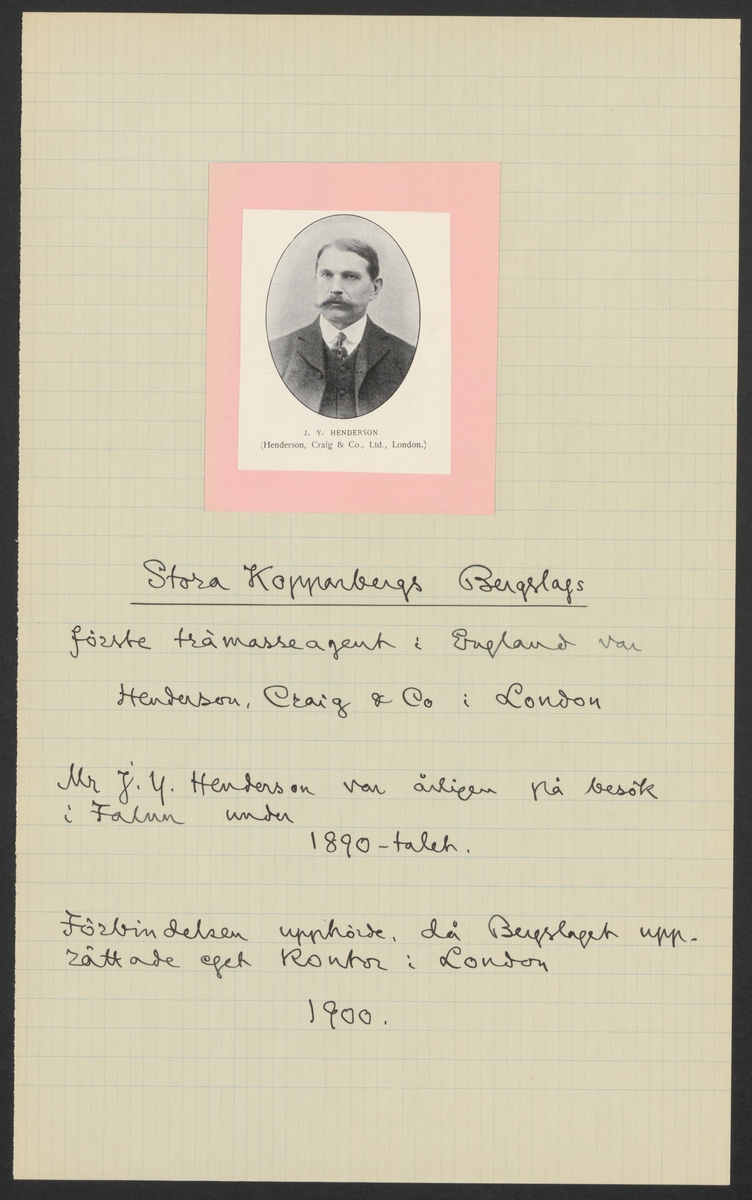 J. Y. HENDERSON
(Henderson, Craig & Co., Ltd., London.)
Stora Kopparbergs Bergslags
förste trämasseagent i England var
Henderson, Craig & Co i London
Mr J. Y. Henderson var årligen på besök
i Falun under
1890-talet.
Förbindelsen upphörde, då Bergslaget upp-
rättade eget kontor i London
1900.